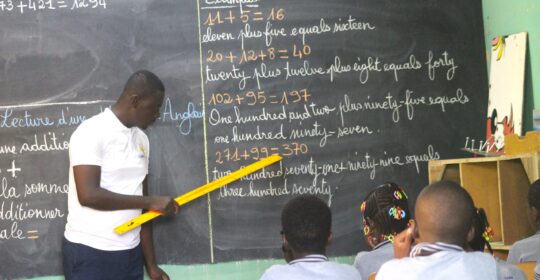 73 + 421 = 1294
Lecture d'une Anglais
une addition
+
la somme
additionner
ale =
Examples
11 + 5 = 16
eleven plus five equals sixteen
20 + 12 + 8 = 40
twenty plus twelve plus eight equals forty
102 + 95 = 197
One hundred and two plus ninety-five equals
one hundred ninety-seven.
271 + 99 = 370
two hundred seventy-one + ninety-nine equals
three hundred seventy.